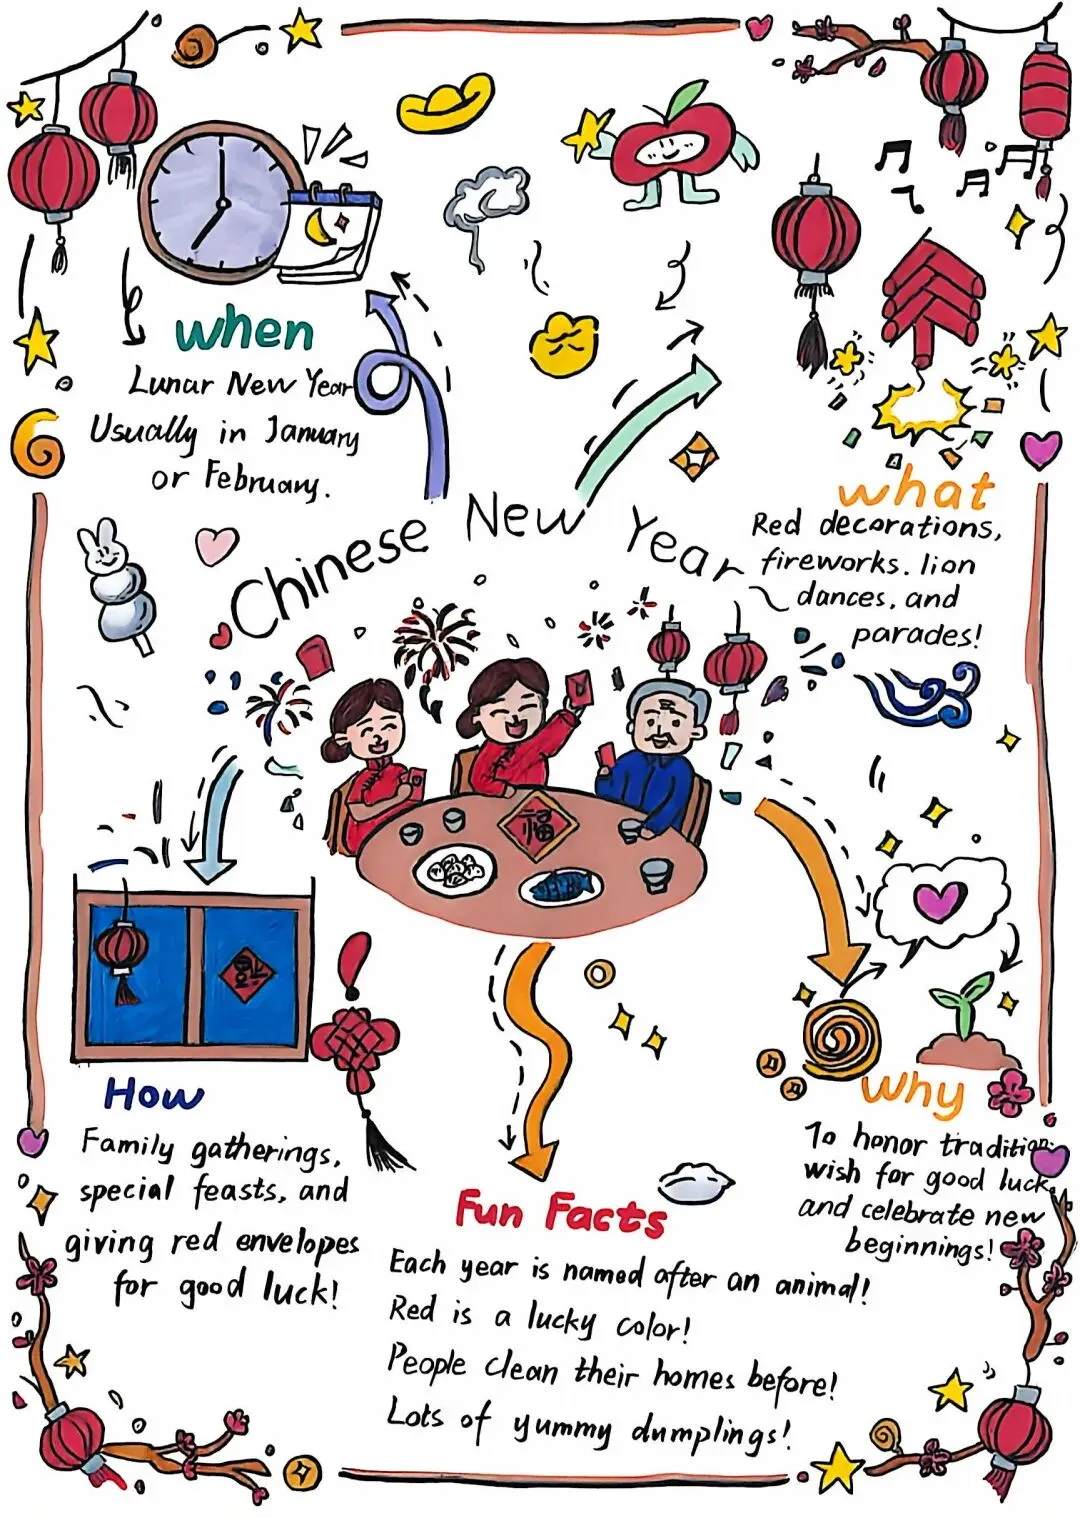 when
Lunar New Year
Usually in January
or February.
Chinese New Year
what
Red decorations,
fireworks. lion
dances, and
parades!
福
福
How
Family gatherings,
special feasts, and
giving red envelopes
for good luck!
why
To honor tradition,
wish for good luck,
and celebrate new
beginnings!
Fun Facts
Each year is named after an animal!
Red is a lucky color!
People clean their homes before!
Lots of yummy dumplings!